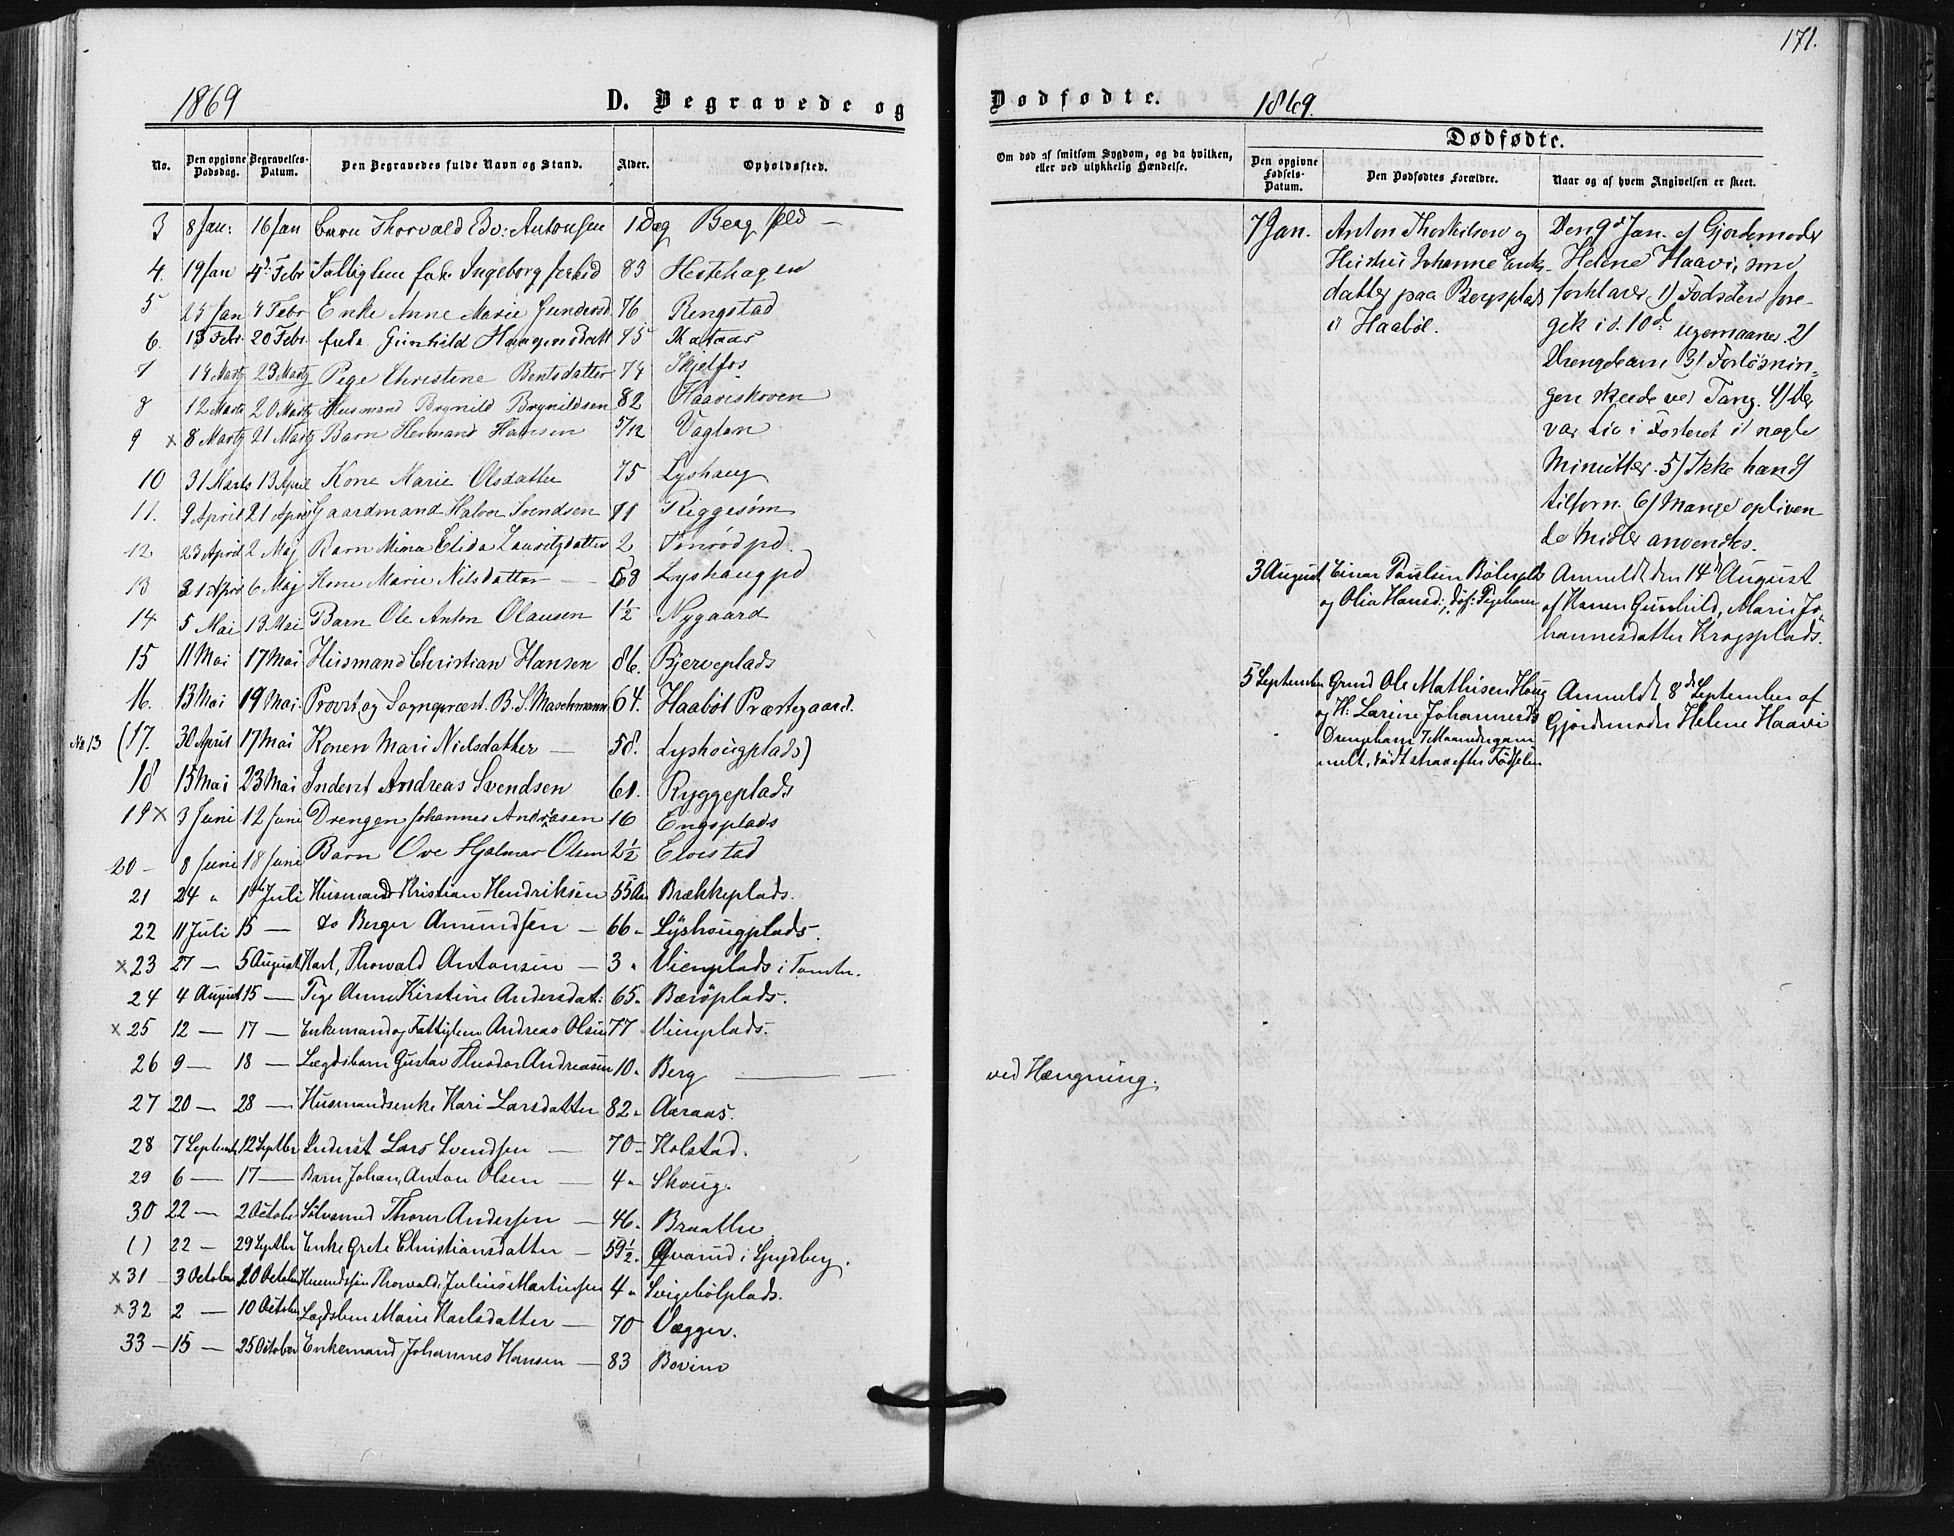 171.
1869
D. Begravede og
Dødfødte.
1869.
No.
Den opgivne Dødsdag.
Begravelses-Datum.
Den Begravedes fulde Navn og Stand.
Alder.
Opholdssted.
Om død af smitsom Sygdom, og da hvilken,
eller ved ulykkelig Hændelse.
Dødfødte.
Den opgivne Fødsels-Datum.
Den Dødfødtes Forældre.
Naar og af hvem Angivelsen er skeet.
3 8 Jan: 16 Jan Barn Thorvald Antonsen 1 Dag Berg
4. 19 Jan 4de Febr Fattiglem Ingeborg 83 Hestehagen
5 25 Jan 4 Febr Enke Anne Marie Gundersd 76 Rengstad
6. 13 Febr 20 Febr Gunhild Haagensdatt 75
7 14 Martz 23 Martz Pige Christine Bentsdatter 74 Skjelfos
8 12 Marts 20 Martz Husmand Brynild Brynildsen 82 Haaviskoven
9 x 8 Martz 21 Martz Barn Hermand Hansen 5/12 Vagten
10 31 Marts 13 April Kone Marie Olsdatter 75 Lyshaug
11. 9 April 21 April Gaardmand Halvor Svendsen 71 Riggesøm
12 23 April 2 Maj Barn Mina Elida Lauritzdatter 2
13 April 6 Maj Kone Marie Nilsdatter — 58 Lyshaug pd
14 5 Mai 13 Mai Barn Ole Anton Olausen 1½ Nygaard
15 11 Mai 17 Mai Husmand Christian Hansen 86. Bjerveplads
16. 13 Mai 19 Mai Provst og Sognepræst B. S. Maschmann 64. Haabøl Præstegaard.
No 13 (17. 30 April 17 Mai Konen Mari Nielsdatter — 58. Lyshougplads)
18 15 Mai 23 Mai Inderst Andreas Svendsen 61. Ryggeplads
19 x 3 Juni 12 Juni Drengen Johannes Andreasen 16 Engsplads
20 — 8 Juni 18 Juni Barn Ove Hjalmar Olsen 2½
21 24 " 1ste Juli Husmand Kristian Hendriksen 55 Aar Brækkeplads.
22 11 Juli 15 — do Berger Amundsen — 66 " Lyshougplads.
x 23 27 — 5 August Karl Thorvald Antonsen — 3 " Vienplads i Tomter.
24 4 August 15 — Pige Anne Kirstine Andersdat: 65 " Bærøplads.
x 25 12 — 17 — Enkemand og Fattiglem Andreas Olsen 77 Vienplads.
26 9 — 18 — Lægdsbarn Gustav Theodor Andreasen 10 " Berg — ved Hængning.
27 20 — 28 — Husmandsenke Kari Larsdatter 82 " Aaraas.
28 7 Septembr 12 Septbr Inderst Lars Svendsen — 70 — Holstad.
29 6 — 17 — Barn Johan Anton Olsen — 4 " Skoug.
30 22 — 2 October Selvmord Thorer Andersen — 46 " Braathe
( ) 22 — 29 Septbr Enke Grete Christiansdatter — 59½ " Qvarud i Spydberg.
x 31 3 October 10 October Thorvald Julius Martinsen 4 " Svigebølplads.
x 32 2 — 10 October Lægdslem Marie Karlsdatter — 70 Vægger.
33 — 15 — 25 October Enkemand Johannes Hansen — 83 Bovim
7 Jan.
Anton Thorkilsen og
Hustru Johanne Eriks-
datter paa Bergsplads
i Haabøl.
Den 9de Jan. af Gjordemoder
Helene Haavi, som
forklarer, 1) Fødselen fore-
gik i d. 10de 2)
Drengebarn 3) Forløsnin-
gen skeede ved Tang. 4) Der
var Liv i Fosteret i nogle
Minutter. 5) Ikke
tilforn. 6) Mange opliven-
de Midler anvendtes.
3 August
Einar Paulsen Bøleplds
og Olia Hansd:, døf: Pigebarn
Anmeldt den 14de August
af Konen Gunhild Marie Jo-
hannesdatter Krogsplads.
5 September
Grmd Ole Mathisen Houg
og H: Larine Johannesd:
Drengebarn 7 Maaneder gam-
melt, født strax efter Fødselen
Anmeldt 8de September af
Gjordemoder Helene Haavi